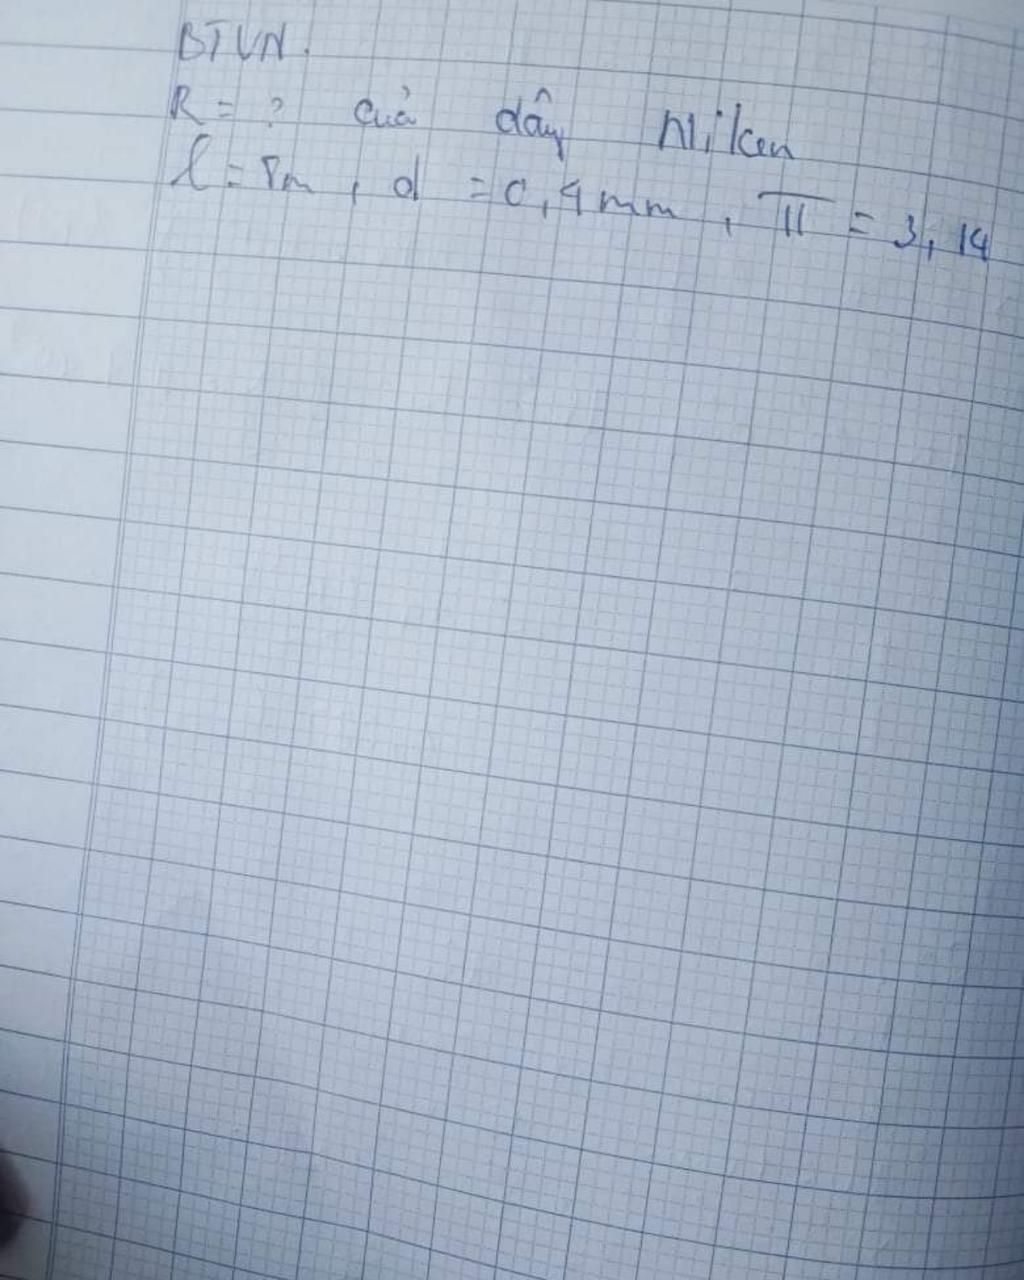 BTVN.
R = ? của dây Niken
l = 8m, d = 0,4mm, π = 3,14